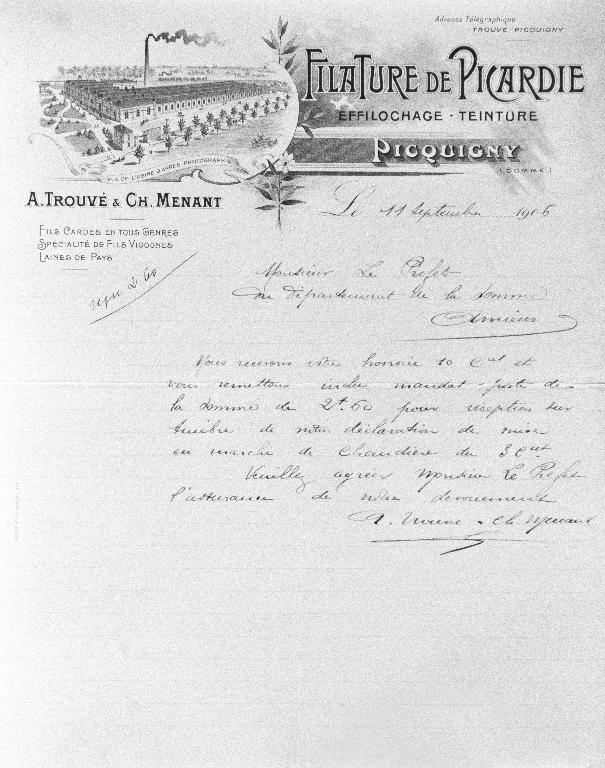 Adresse Télégraphique
TROUVÉ-PICQUIGNY
FILATURE DE PICARDIE
EFFILOCHAGE - TEINTURE
PICQUIGNY
(SOMME)
VUE DE L'USINE D'APRÈS PHOTOGRAPHIE
A. TROUVÉ & CH. MENANT
FILS CARDÉS EN TOUS GENRES
SPÉCIALITÉ DE FILS VIGOGNES
LAINES DE PAYS
Le 11 Septembre 1906
reçu 2 60
Monsieur Le Préfet
du département de la Somme
Amiens
Nous recevons votre honorée 10 Ct et
vous remettons inclus mandat-poste de
la somme de 2f.60 pour réception sur
timbre de notre déclaration de mise
en marche de Chaudière du 3 Ct
Veuillez agréer Monsieur Le Préfet
l'assurance de notre dévouement
A. Trouvé & Ch. Menant